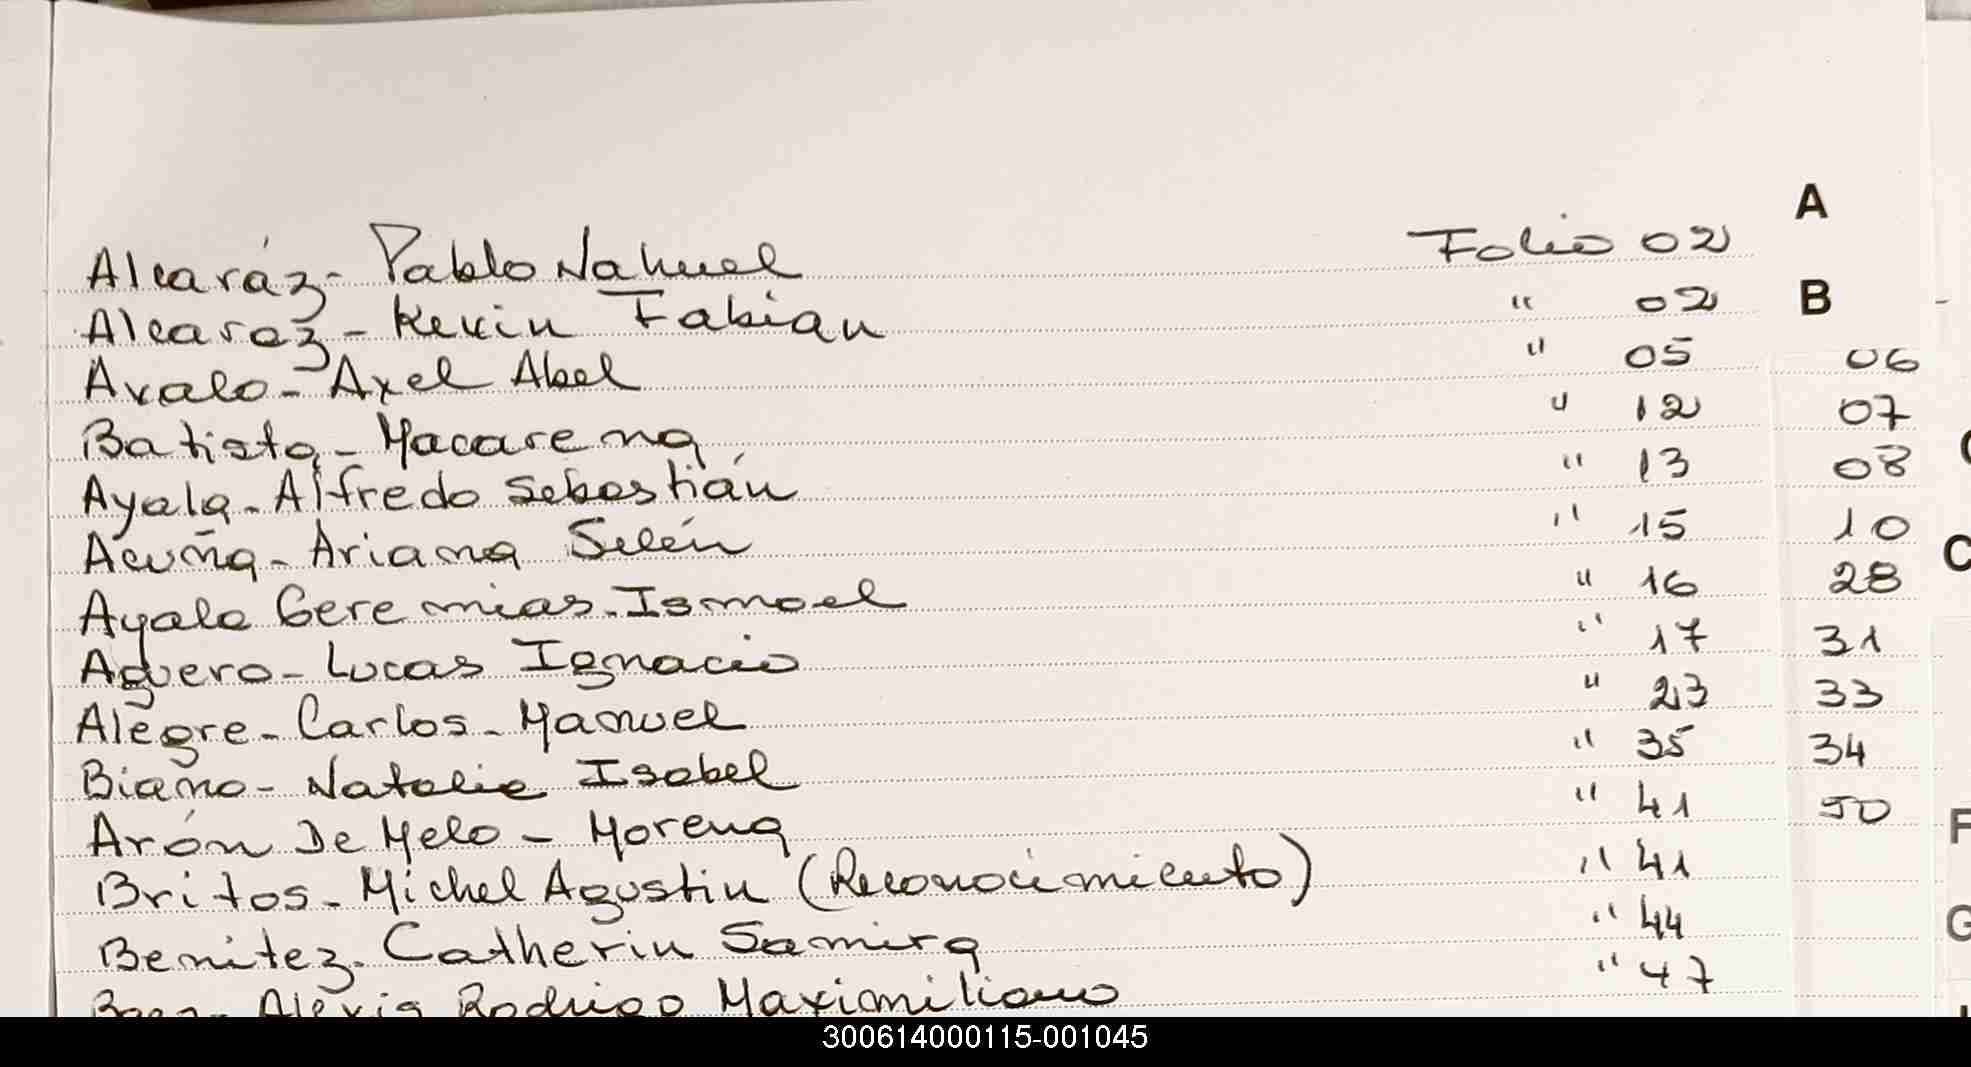 A
Alcaráz- Pablo Nahuel Folio 02
B
Alcaraz - Kevin Fabian " 02
Avalo - Axel Abel " 05 06
Batista - Macarena " 12 07
Ayala - Alfredo Sebastián " 13 08
Acuña - Ariana Selén " 15 10
C
Ayala Geremias - Ismael " 16 28
Aguero - Lucas Ignacio " 17 31
Alegre - Carlos - Manuel " 23 33
Biano - Natalia Isabel " 35 34
Arón De Melo - Morena " 41 50
F
Britos - Michel Agustin (Reconocimiento) " 41
Benitez - Catherin Samira " 44
G
Baez - Alexis Rodrigo Maximiliano " 47
300614000115-001045